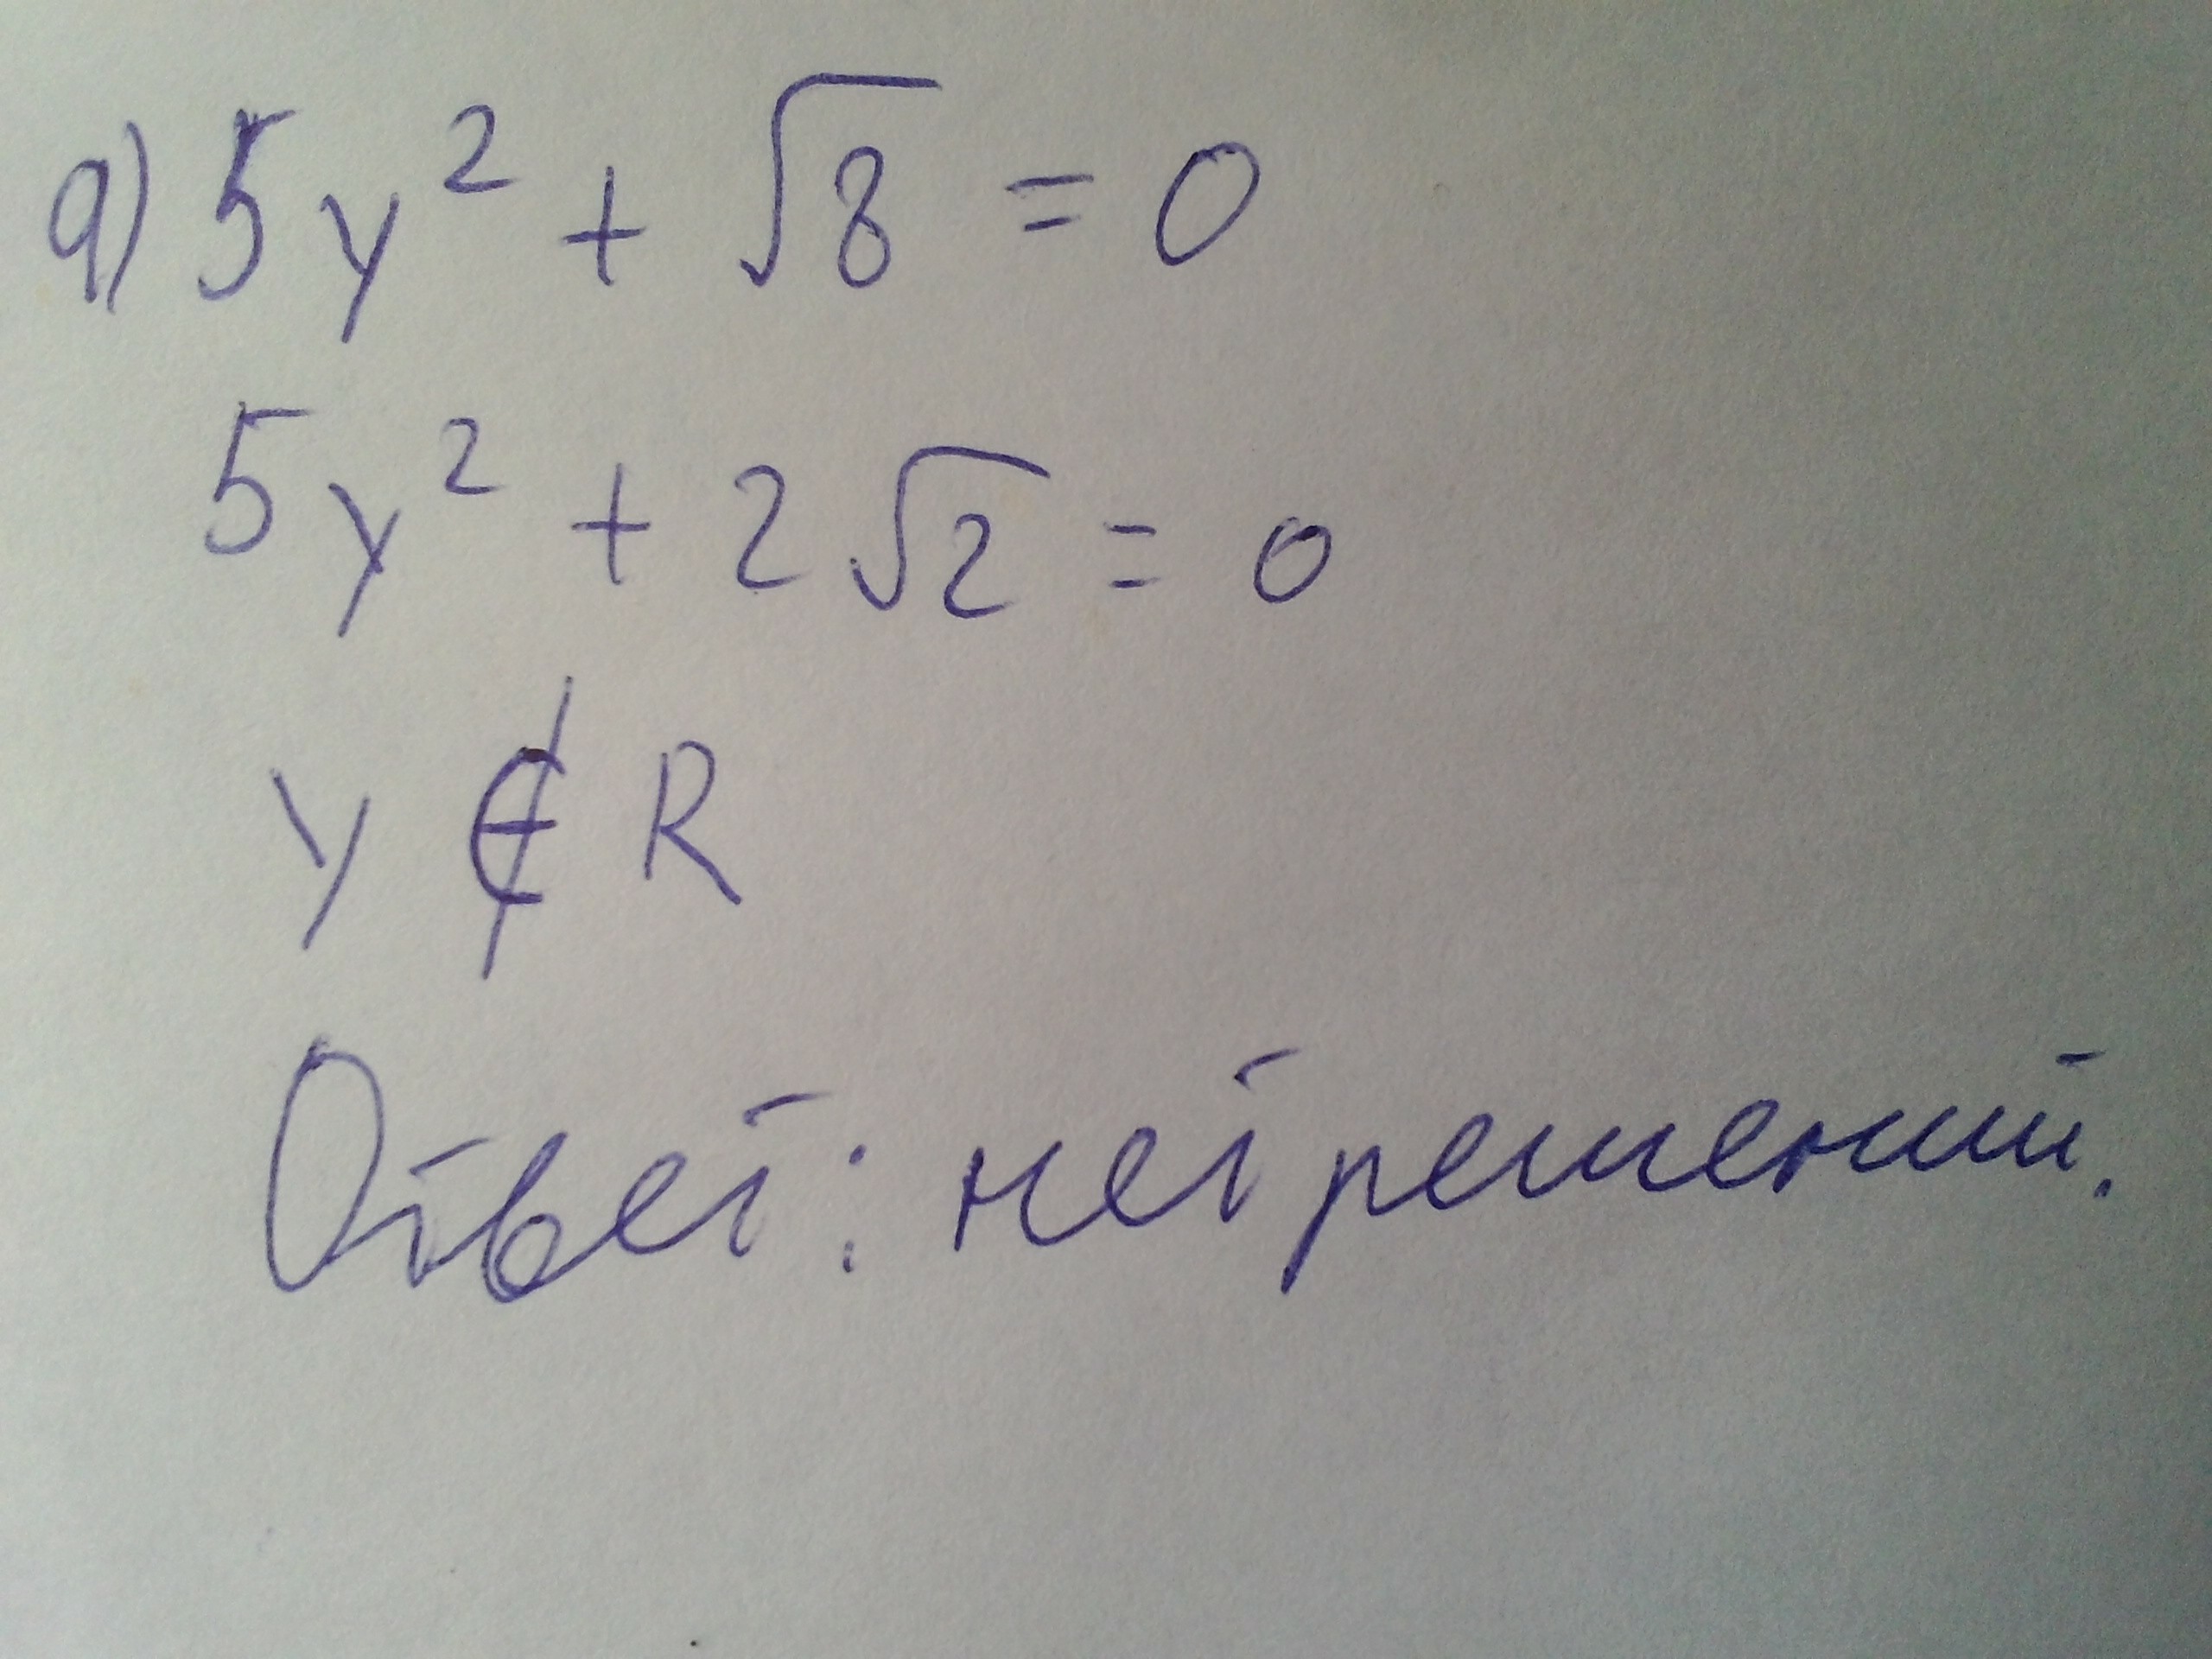 а) 5y² + √8 = 0
5y² + 2√2 = 0
y ∉ R
Ответ: нет решений.